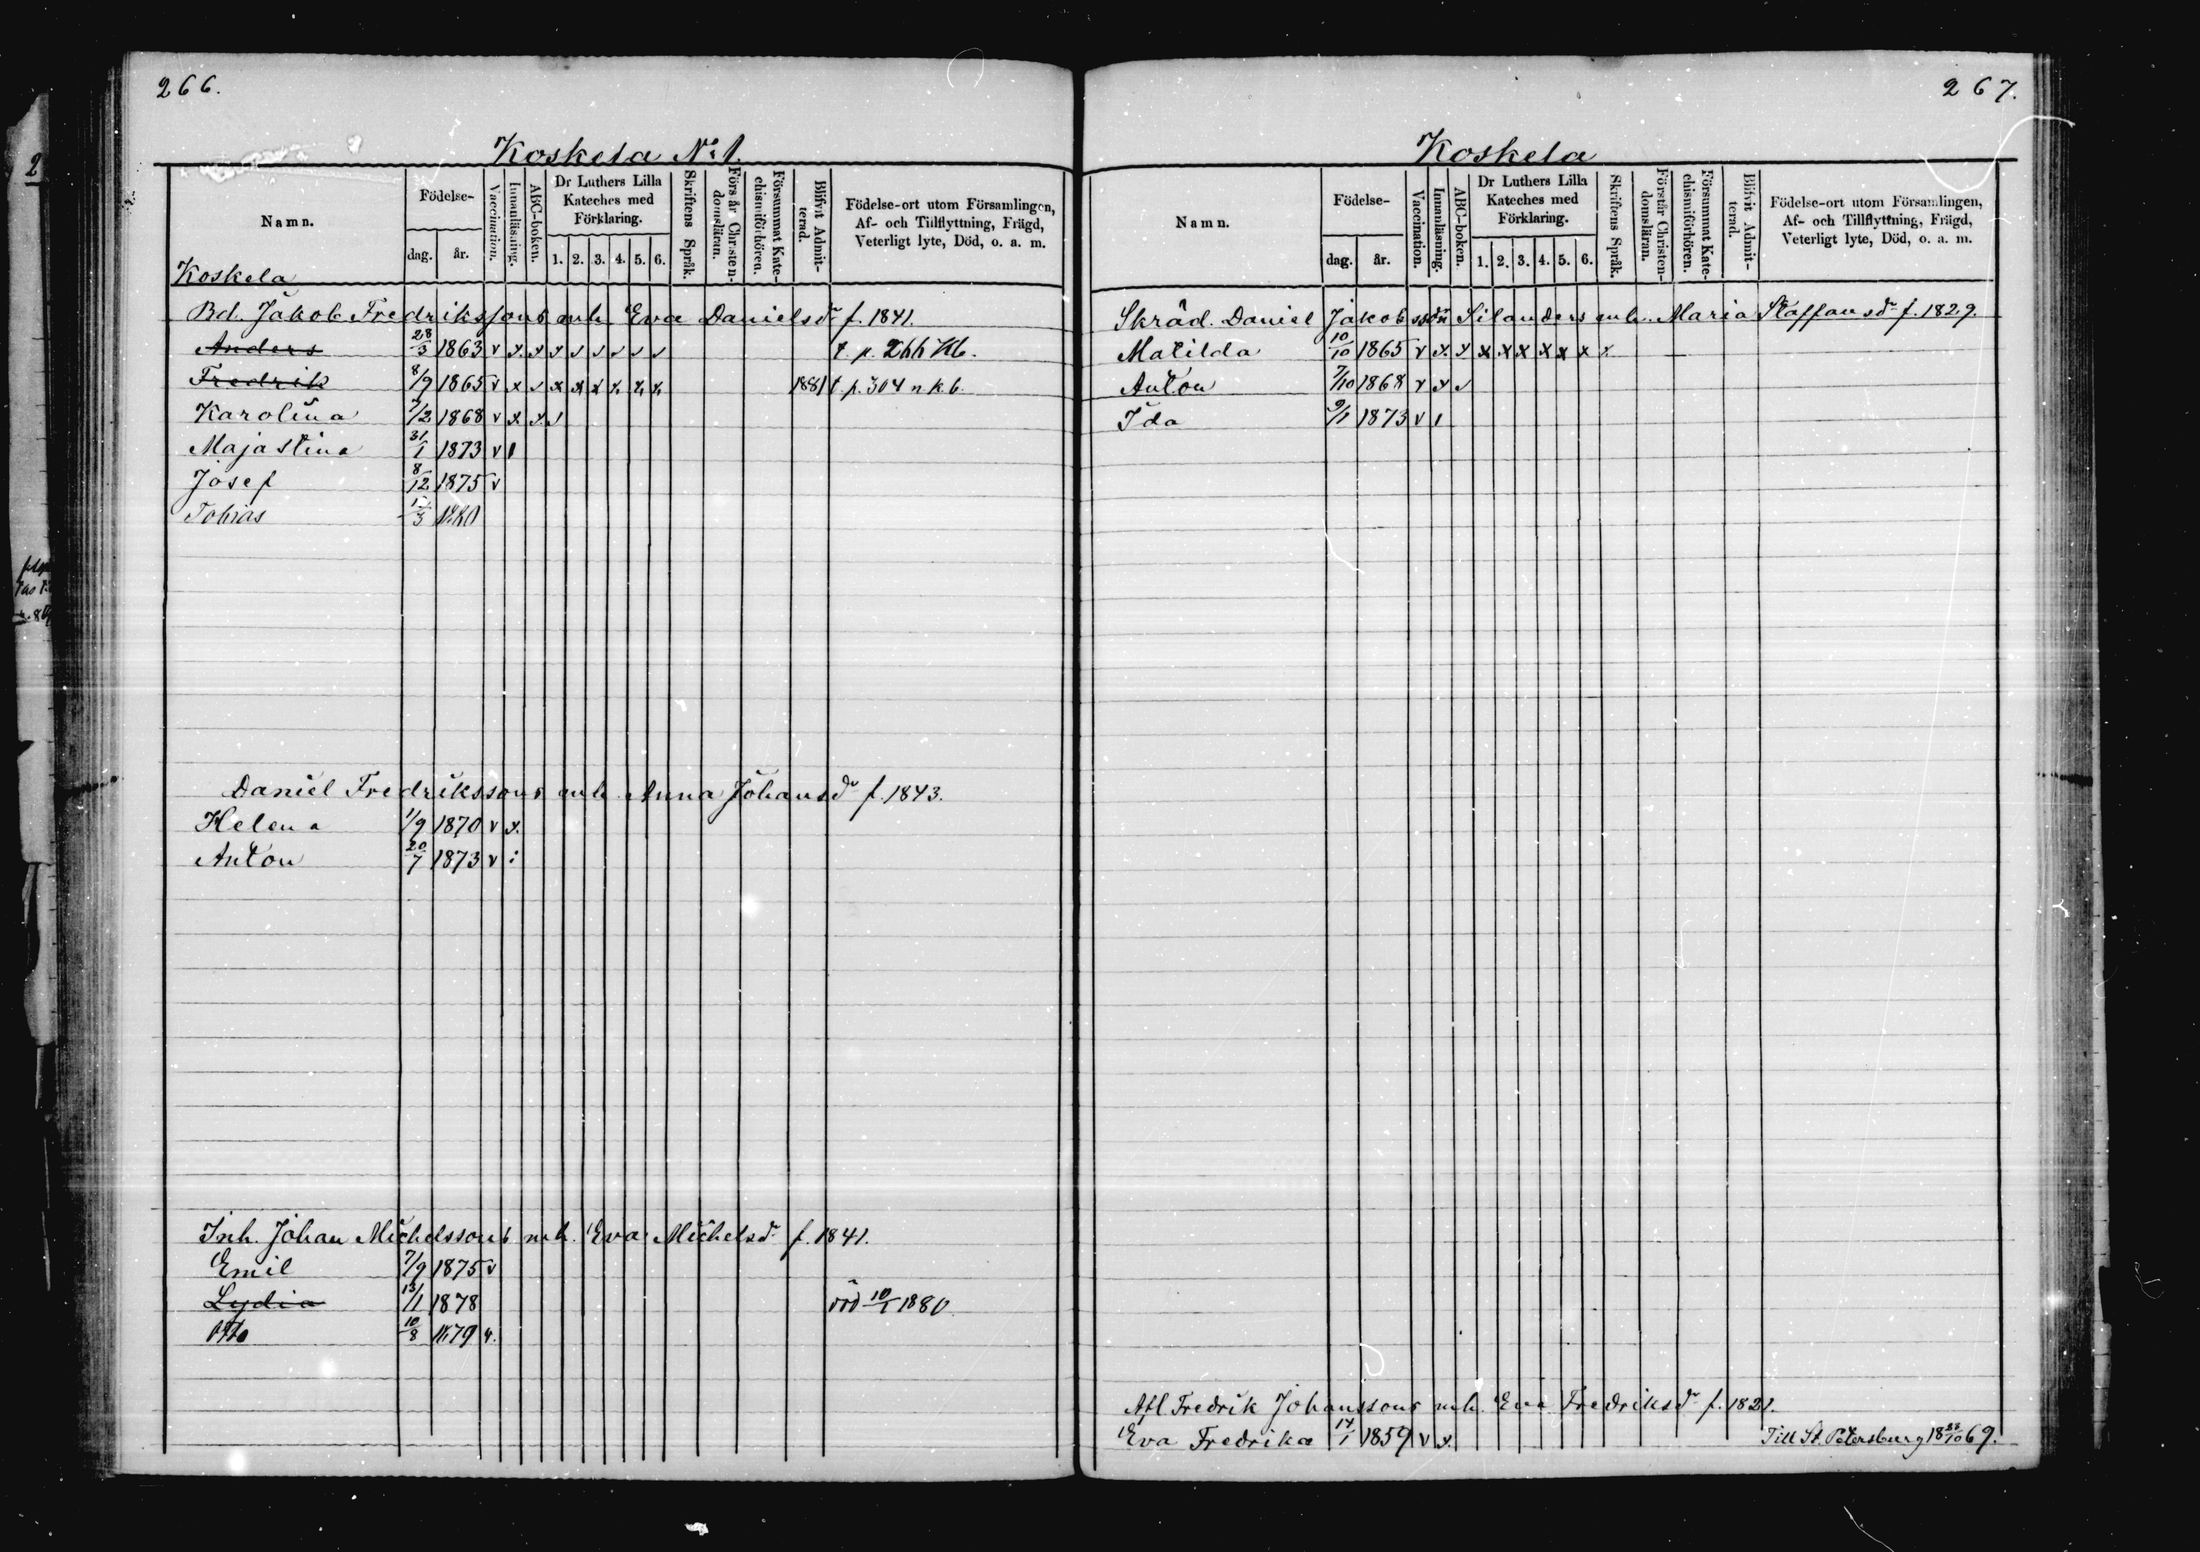 266.
Koskela No 1.
Namn.
Födelse-
dag.
år.
Vaccination.
Innanläsning.
ABC-boken.
Dr Luthers Lilla
Kateches med
Förklaring.
1. 2. 3. 4. 5. 6.
Skriftens Språk.
Förstår Christen-
domsläran.
Försummat Kate-
chismiförhören.
Blifvit Admit-
terad.
Födelse-ort utom Församlingen,
Af- och Tillflyttning, Frägd,
Veterligt lyte, Död, o. a. m.
Koskela
Bd. Jakob Fredrikssons enh. Eva Danielsdr f. 1841.
Anders 28/3 1863 v x x x v v v v v t. p.
Fredrik 8/9 1865 v x v x x x x x x 1881 t p. 304 n k b.
Karolina 7/2 1868 v x x v
Maja Stina 31/1 1873 v 1
Josef 8/12 1875 v
Tobias 1880
Daniel Fredrikssons enh. Anna Johansdr f. 1843.
Helena 1/9 1870 v x
Anton 20/7 1873 v i
Inh. Johan Michelssons mh. Eva Michelsdr f. 1841.
Emil 7/9 1875 v
Lydia 13/1 1878 död 10/1 1880
Otto 10/8 1879 v.
267.
Koskela
Namn.
Födelse-
dag.
år.
Vaccination.
Innanläsning.
ABC-boken.
Dr Luthers Lilla
Kateches med
Förklaring.
1. 2. 3. 4. 5. 6.
Skriftens Språk.
Förstår Christen-
domsläran.
Försummat Kate-
chismiförhören.
Blifvit Admit-
terad.
Födelse-ort utom Församlingen,
Af- och Tillflyttning, Frägd,
Veterligt lyte, Död, o. a. m.
Skräd. Daniel Jakobsson Silanders enh. Maria Staffansdr f. 1829.
Matilda 10/10 1865 v x x x x x x x x x —
Anton 7/10 1868 v x v
Ida 9/1 1873 v 1
Afl Fredrik Johanssons mh. Eva Fredriksdr f. 1821.
Eva Fredrika 14/1 1859 v x Till St Petersburg 18 23/10 69.